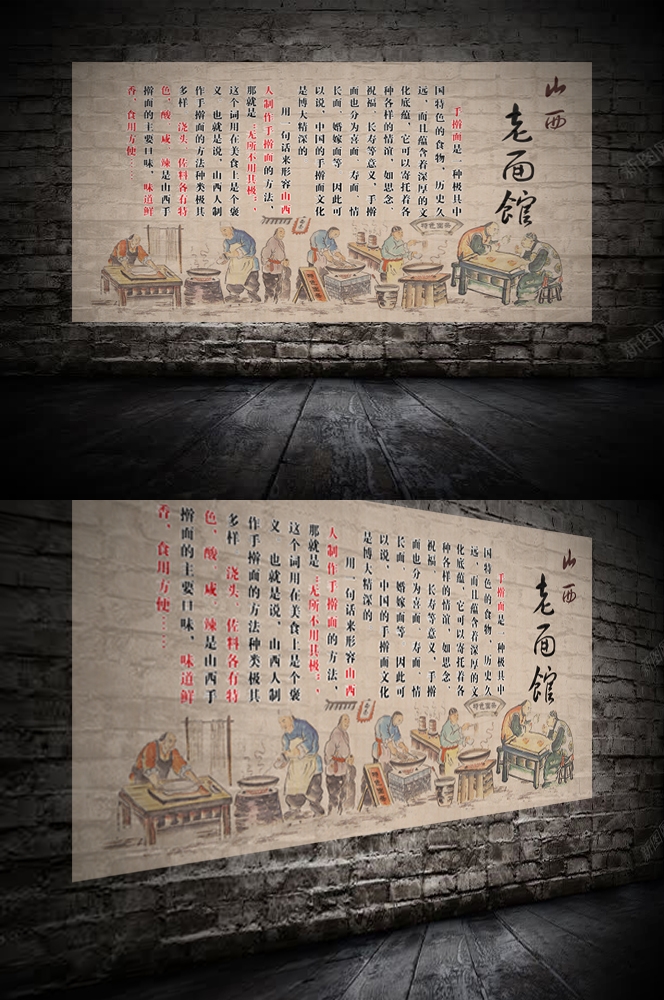 山西
老面馆
手擀面是一种极具中
国特色的食物，历史久
远，而且蕴含着深厚的文
化底蕴，它可以寄托着各
种各样的情谊，如思念、
祝福、长寿等意义，手擀
面也分为喜面、寿面、情
长面、婚嫁面等，因此可
以说，中国的手擀面文化
是博大精深的
用一句话来形容山西
人制作手擀面的方法，
那就是“无所不用其极”，
这个词用在美食上是个褒
义，也就是说，山西人制
作手擀面的方法种类极其
多样，浇头、佐料各有特
色，酸、咸、辣是山西手
擀面的主要口味，味道鲜
香，食用方便……
山西
老面馆
手擀面是一种极具中
国特色的食物，历史久
远，而且蕴含着深厚的文
化底蕴，它可以寄托着各
种各样的情谊，如思念、
祝福、长寿等意义，手擀
面也分为喜面、寿面、情
长面、婚嫁面等，因此可
以说，中国的手擀面文化
是博大精深的
用一句话来形容山西
人制作手擀面的方法，
那就是“无所不用其极”，
这个词用在美食上是个褒
义，也就是说，山西人制
作手擀面的方法种类极其
多样，浇头、佐料各有特
色，酸、咸、辣是山西手
擀面的主要口味，味道鲜
香，食用方便……